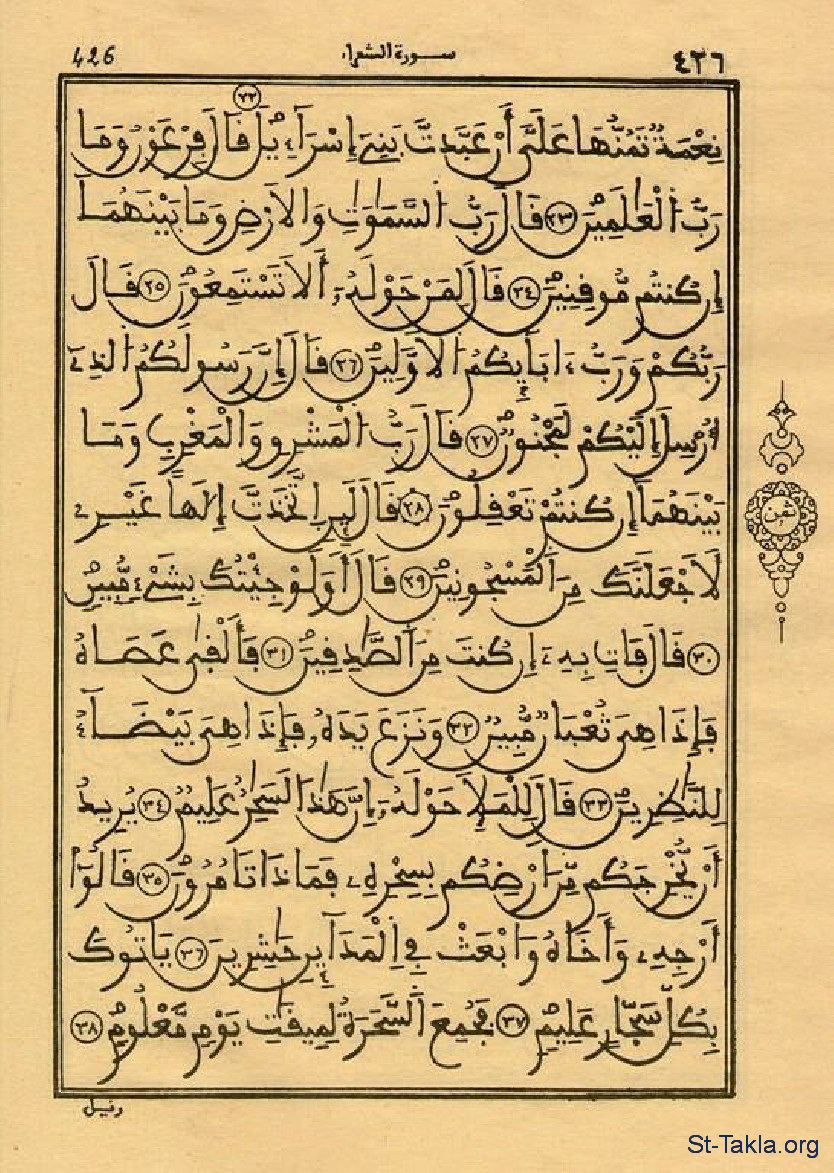 426 سورة الشعراء ٤٢٦
نِعْمَةٌ تَمُنُّهَا عَلَىَّ أَنْ عَبَّدتَّ بَنِىٓ إِسْرَآءِيلَ ٢٢ قَالَ فِرْعَوْنُ وَمَا
رَبُّ الْعَٰلَمِينَ ٢٣ قَالَ رَبُّ السَّمَٰوَٰتِ وَالَارْضِ وَمَا بَيْنَهُمَآ
إِن كُنتُم مُّوقِنِينَ ٢٤ قَالَ لِمَنْ حَوْلَهُۥٓ أَلَا تَسْتَمِعُونَ ٢٥ قَالَ
رَبُّكُمْ وَرَبُّ ءَابَآئِكُمُ الَاوَّلِينَ ٢٦ قَالَ إِنَّ رَسُولَكُمُ الذِےٓ
أُرْسِلَ إِلَيْكُمْ لَمَجْنُونٌ ٢٧ قَالَ رَبُّ الْمَشْرِقِ وَالْمَغْرِبِ وَمَا
بَيْنَهُمَآ إِن كُنتُمْ تَعْقِلُونَ ٢٨ قَالَ لَئِنِ اِتَّخَذتَّ إِلَٰهاً غَيْرِے
لَأَجْعَلَنَّكَ مِنَ الْمَسْجُونِينَ ٢٩ قَالَ أَوَلَوْ جِئْتُكَ بِشَىْءٍ مُّبِينٍ
٣٠ قَالَ فَاتِ بِهِۦٓ إِن كُنتَ مِنَ الصَّٰدِقِينَ ٣١ فَأَلْقَىٰ عَصَاهُ
فَإِذَا هِىَ ثُعْبَانٌ مُّبِينٌ ٣٢ وَنَزَعَ يَدَهُۥ فَإِذَا هِىَ بَيْضَآءُ
لِلنَّٰظِرِينَ ٣٣ قَالَ لِلْمَلَإِ حَوْلَهُۥٓ إِنَّ هَٰذَا لَسَٰحِرٌ عَلِيمٌ ٣٤ يُرِيدُ
أَنْ يُّخْرِجَكُم مِّنَ اَرْضِكُم بِسِحْرِهِۦ فَمَاذَا تَامُرُونَ ٣٥ قَالُوٓاْ
أَرْجِهِۦ وَأَخَاهُ وَابْعَثْ فِے اِلْمَدَآئِنِ حَٰشِرِينَ ٣٦ يَاتُوكَ
بِكُلِّ سَحَّارٍ عَلِيمٍ ٣٧ فَجُمِعَ السَّحَرَةُ لِمِيقَٰتِ يَوْمٍ مَّعْلُومٍ ٣٨
وقيل
ثمن
St-Takla.org